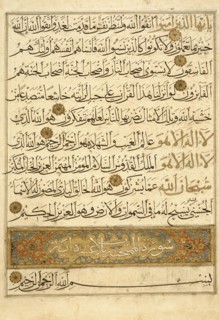 يا أيها الذين آمنوا اتقوا الله ولتنظر نفس ما قدمت لغد واتقوا الله إن الله
خبير بما تعملون ولا تكونوا كالذين نسوا الله فأنساهم أنفسهم أولئك هم
الفاسقون لا يستوي أصحاب النار وأصحاب الجنة أصحاب الجنة هم
الفائزون لو أنزلنا هذا القرآن على جبل لرأيته خاشعا متصدعا من
خشية الله وتلك الأمثال نضربها للناس لعلهم يتفكرون هو الله الذي
لا إله إلا هو عالم الغيب والشهادة هو الرحمن الرحيم هو الله الذي
لا إله إلا هو الملك القدوس السلام المؤمن المهيمن العزيز الجبار المتكبر
سبحان الله عما يشركون هو الله الخالق البارئ المصور له الأسماء
الحسنى يسبح له ما في السموات والأرض وهو العزيز الحكيم
سورة الممتحنة آية
بسم الله الرحمن الرحيم